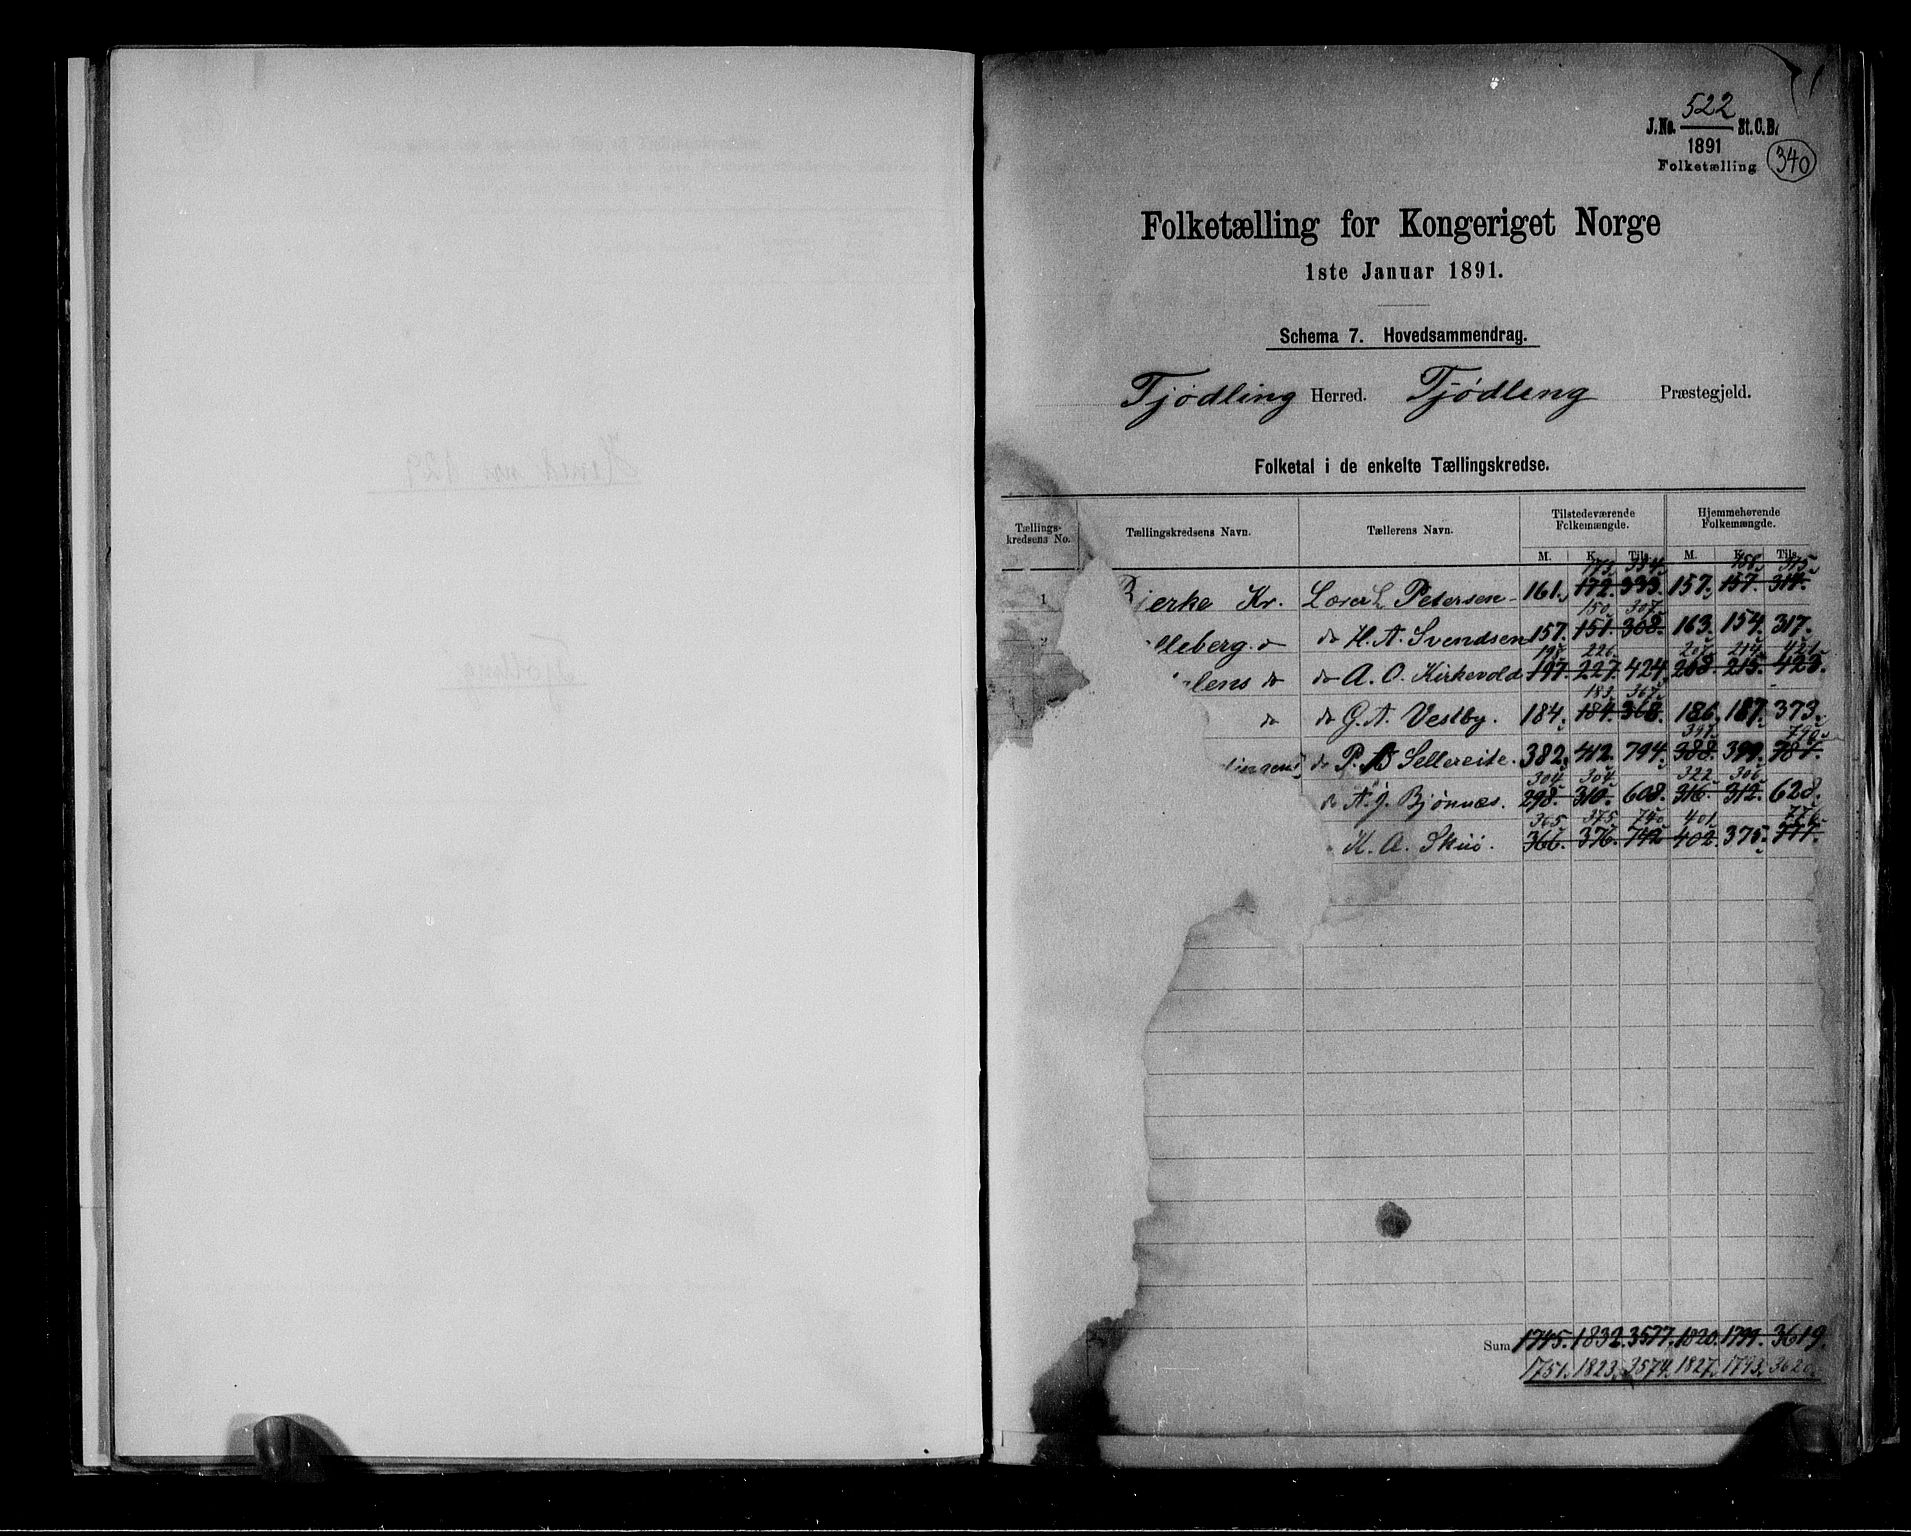 522
J.No. St.C.B.
1891
Folketælling 340
Folketælling for Kongeriget Norge
1ste Januar 1891.
Schema 7. Hovedsammendrag.
Tjødling Herred. Tjødling Præstegjeld.
Folketal i de enkelte Tællingskredse.
Tællings-kredsens No. Tællingskredsens Navn. Tællerens Navn. Tilstedeværende Folkemængde. Hjemmehørende Folkemængde.
M. K. Tils. M. K. Tils.
173. 334. 158. 315.
1 Bjerke Kr. Lærer L Petersen 161. 172. 333. 157. 157. 314.
150. 307.
2 lleberg do do H. A. Svendsen 157. 151. 308. 163. 154. 317.
198. 226. 207. 214. 421.
lens do do A. O. Kirkevold 197. 227. 424. 208. 215. 423.
183. 367.
do do G. A. Vestby. 184. 184. 368. 186. 187. 373.
391. 790.
do P. Sellereite. 382. 412. 794. 388. 399. 787.
304. 304. 322. 306.
do A. J. Bjønnes. 298. 310. 608. 316. 312. 628.
365. 375. 740. 401. 776.
H. A. Skiiö. 366. 376. 742 402. 375. 777.
Sum 1745. 1832 3577. 1820. 1799. 3619.
1751. 1823. 3574. 1827. 1793. 3620.